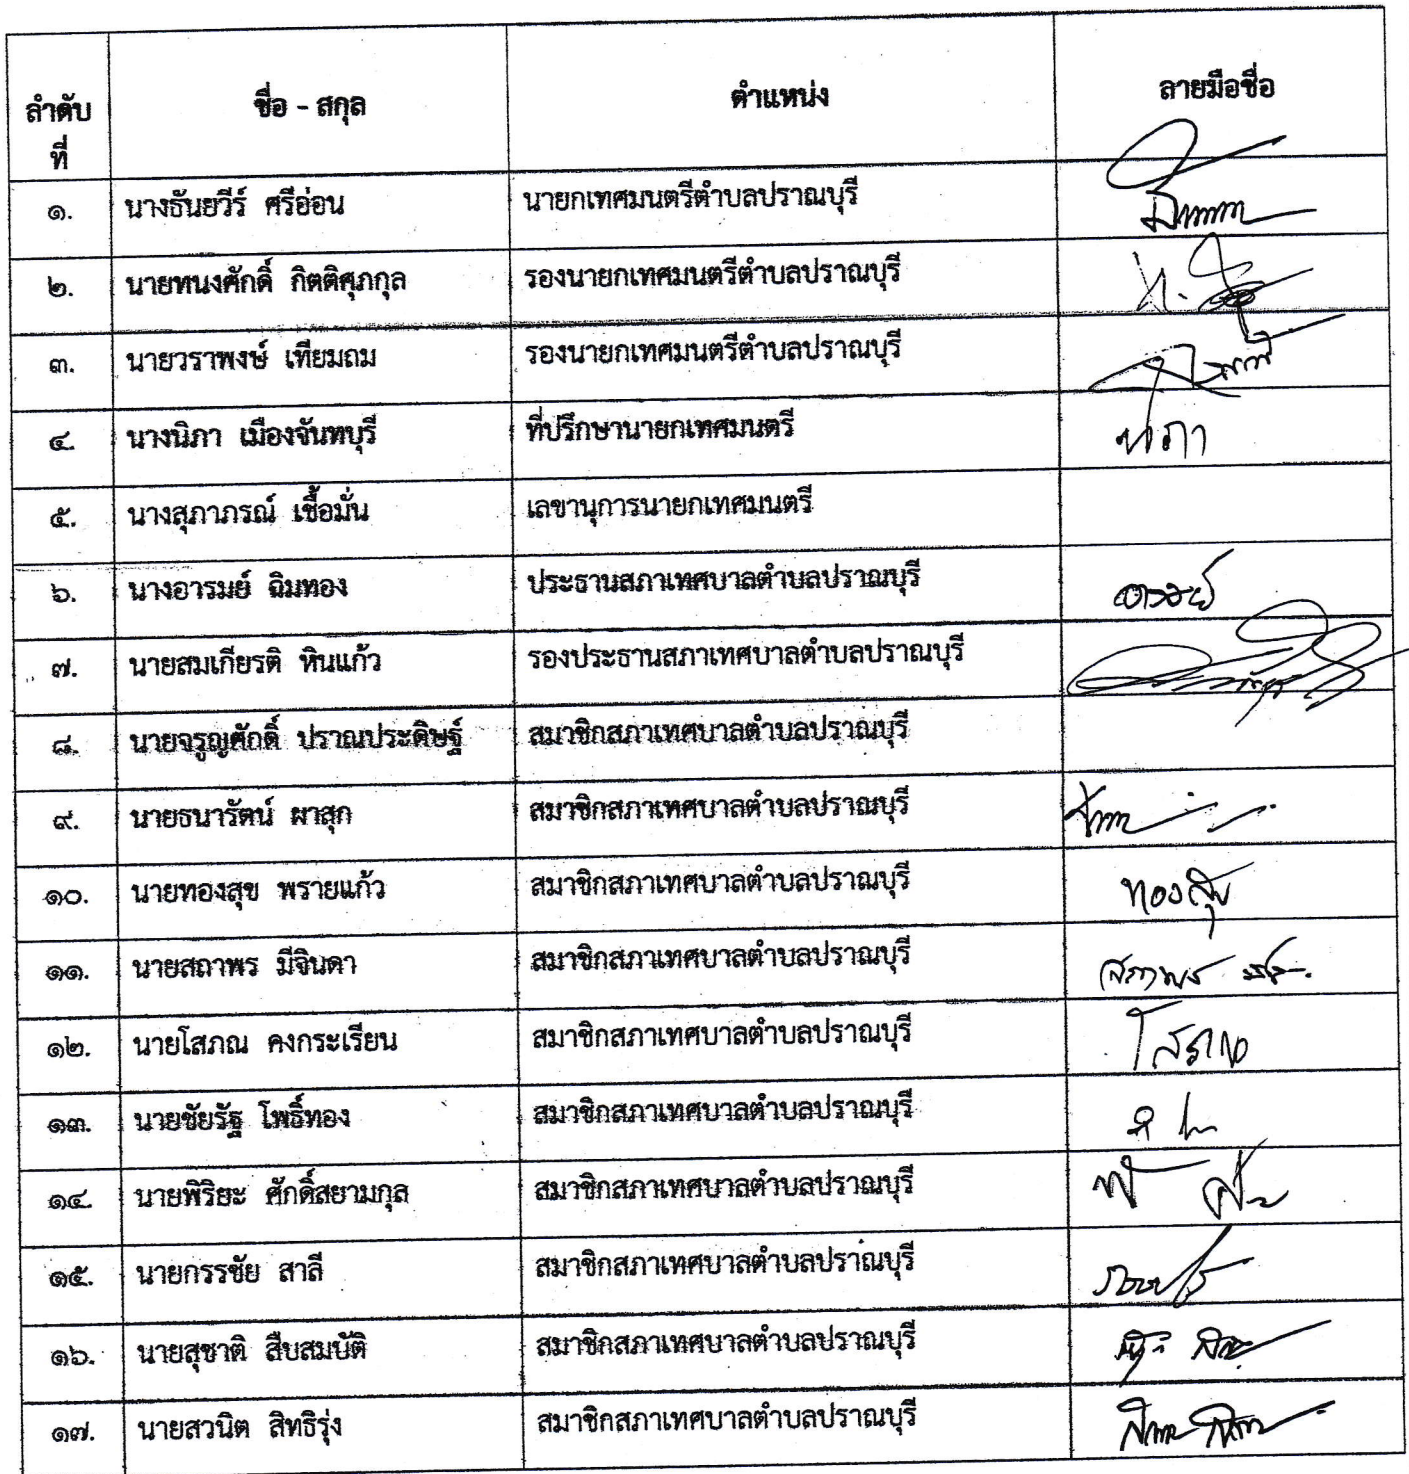 ลำดับ ชื่อ - สกุล ตำแหน่ง ลายมือชื่อ
ที่
๑. นางธันยวีร์ ศรีอ่อน นายกเทศมนตรีตำบลปราณบุรี
๒. นายทนงศักดิ์ กิตติศุภกุล รองนายกเทศมนตรีตำบลปราณบุรี
๓. นายวราพงษ์ เทียมถม รองนายกเทศมนตรีตำบลปราณบุรี
๔. นางนิภา เมืองจันทบุรี ที่ปรึกษานายกเทศมนตรี นิภา
๕. นางสุภาภรณ์ เชื้อมั่น เลขานุการนายกเทศมนตรี
๖. นางอารมย์ ฉิมทอง ประธานสภาเทศบาลตำบลปราณบุรี อารมย์
๗. นายสมเกียรติ หินแก้ว รองประธานสภาเทศบาลตำบลปราณบุรี
๘. นายจรูญศักดิ์ ปราณประดิษฐ์ สมาชิกสภาเทศบาลตำบลปราณบุรี
๙. นายธนารัตน์ ผาสุก สมาชิกสภาเทศบาลตำบลปราณบุรี
๑๐. นายทองสุข พรายแก้ว สมาชิกสภาเทศบาลตำบลปราณบุรี ทองสุข
๑๑. นายสถาพร มีจินดา สมาชิกสภาเทศบาลตำบลปราณบุรี สถาพร
๑๒. นายโสภณ คงกระเรียน สมาชิกสภาเทศบาลตำบลปราณบุรี โสภณ
๑๓. นายชัยรัฐ โพธิ์ทอง สมาชิกสภาเทศบาลตำบลปราณบุรี
๑๔. นายพิริยะ ศักดิ์สยามกุล สมาชิกสภาเทศบาลตำบลปราณบุรี
๑๕. นายกรรชัย สาลี สมาชิกสภาเทศบาลตำบลปราณบุรี
๑๖. นายสุชาติ สืบสมบัติ สมาชิกสภาเทศบาลตำบลปราณบุรี
๑๗. นายสวนิต สิทธิรุ่ง สมาชิกสภาเทศบาลตำบลปราณบุรี